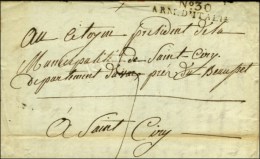 N° 30
ARM. D'ITALIE
Au Citoyen président de la
Municipalité de Saint-Ciry
département du var près du Beausset
A Saint Ciry